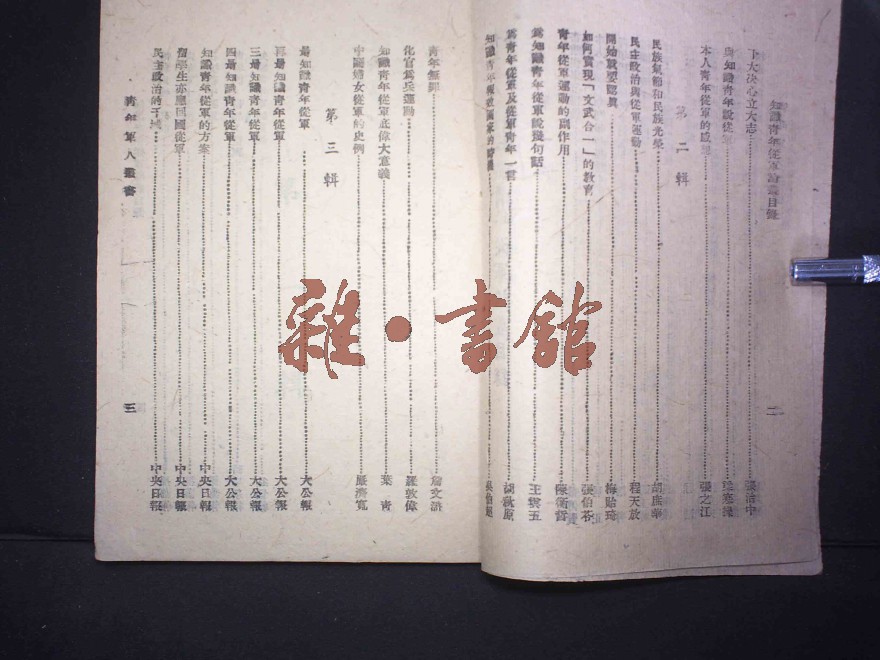 知識青年從軍論叢目錄
下大決心立大志 張治中
與知識青年談從軍
本人青年從軍的感想 張之江
第二輯
民族氣節和民族光榮 胡庶華
民主政治與從軍運動 程天放
開始就要認真 梅貽琦
如何實現「文武合一」的教育 張伯苓
青年從軍運動的副作用 陳衡哲
為知識青年從軍說幾句話 王雲五
為青年從軍及從軍青年一言 胡秋原
知識青年報效國家的時機 吳伯超
二
青年無罪
化官為兵運動 羅敦偉
知識青年從軍底偉大意義 葉青
中國婦女從軍的史例 嚴濟寬
第三輯
論知識青年從軍 大公報
再論知識青年從軍 大公報
三論知識青年從軍 大公報
四論知識青年從軍 大公報
知識青年從軍的方案 中央日報
留學生亦應回國從軍 中央日報
民主政治的干城 中央日報
青年軍人叢書
三
雜·書館